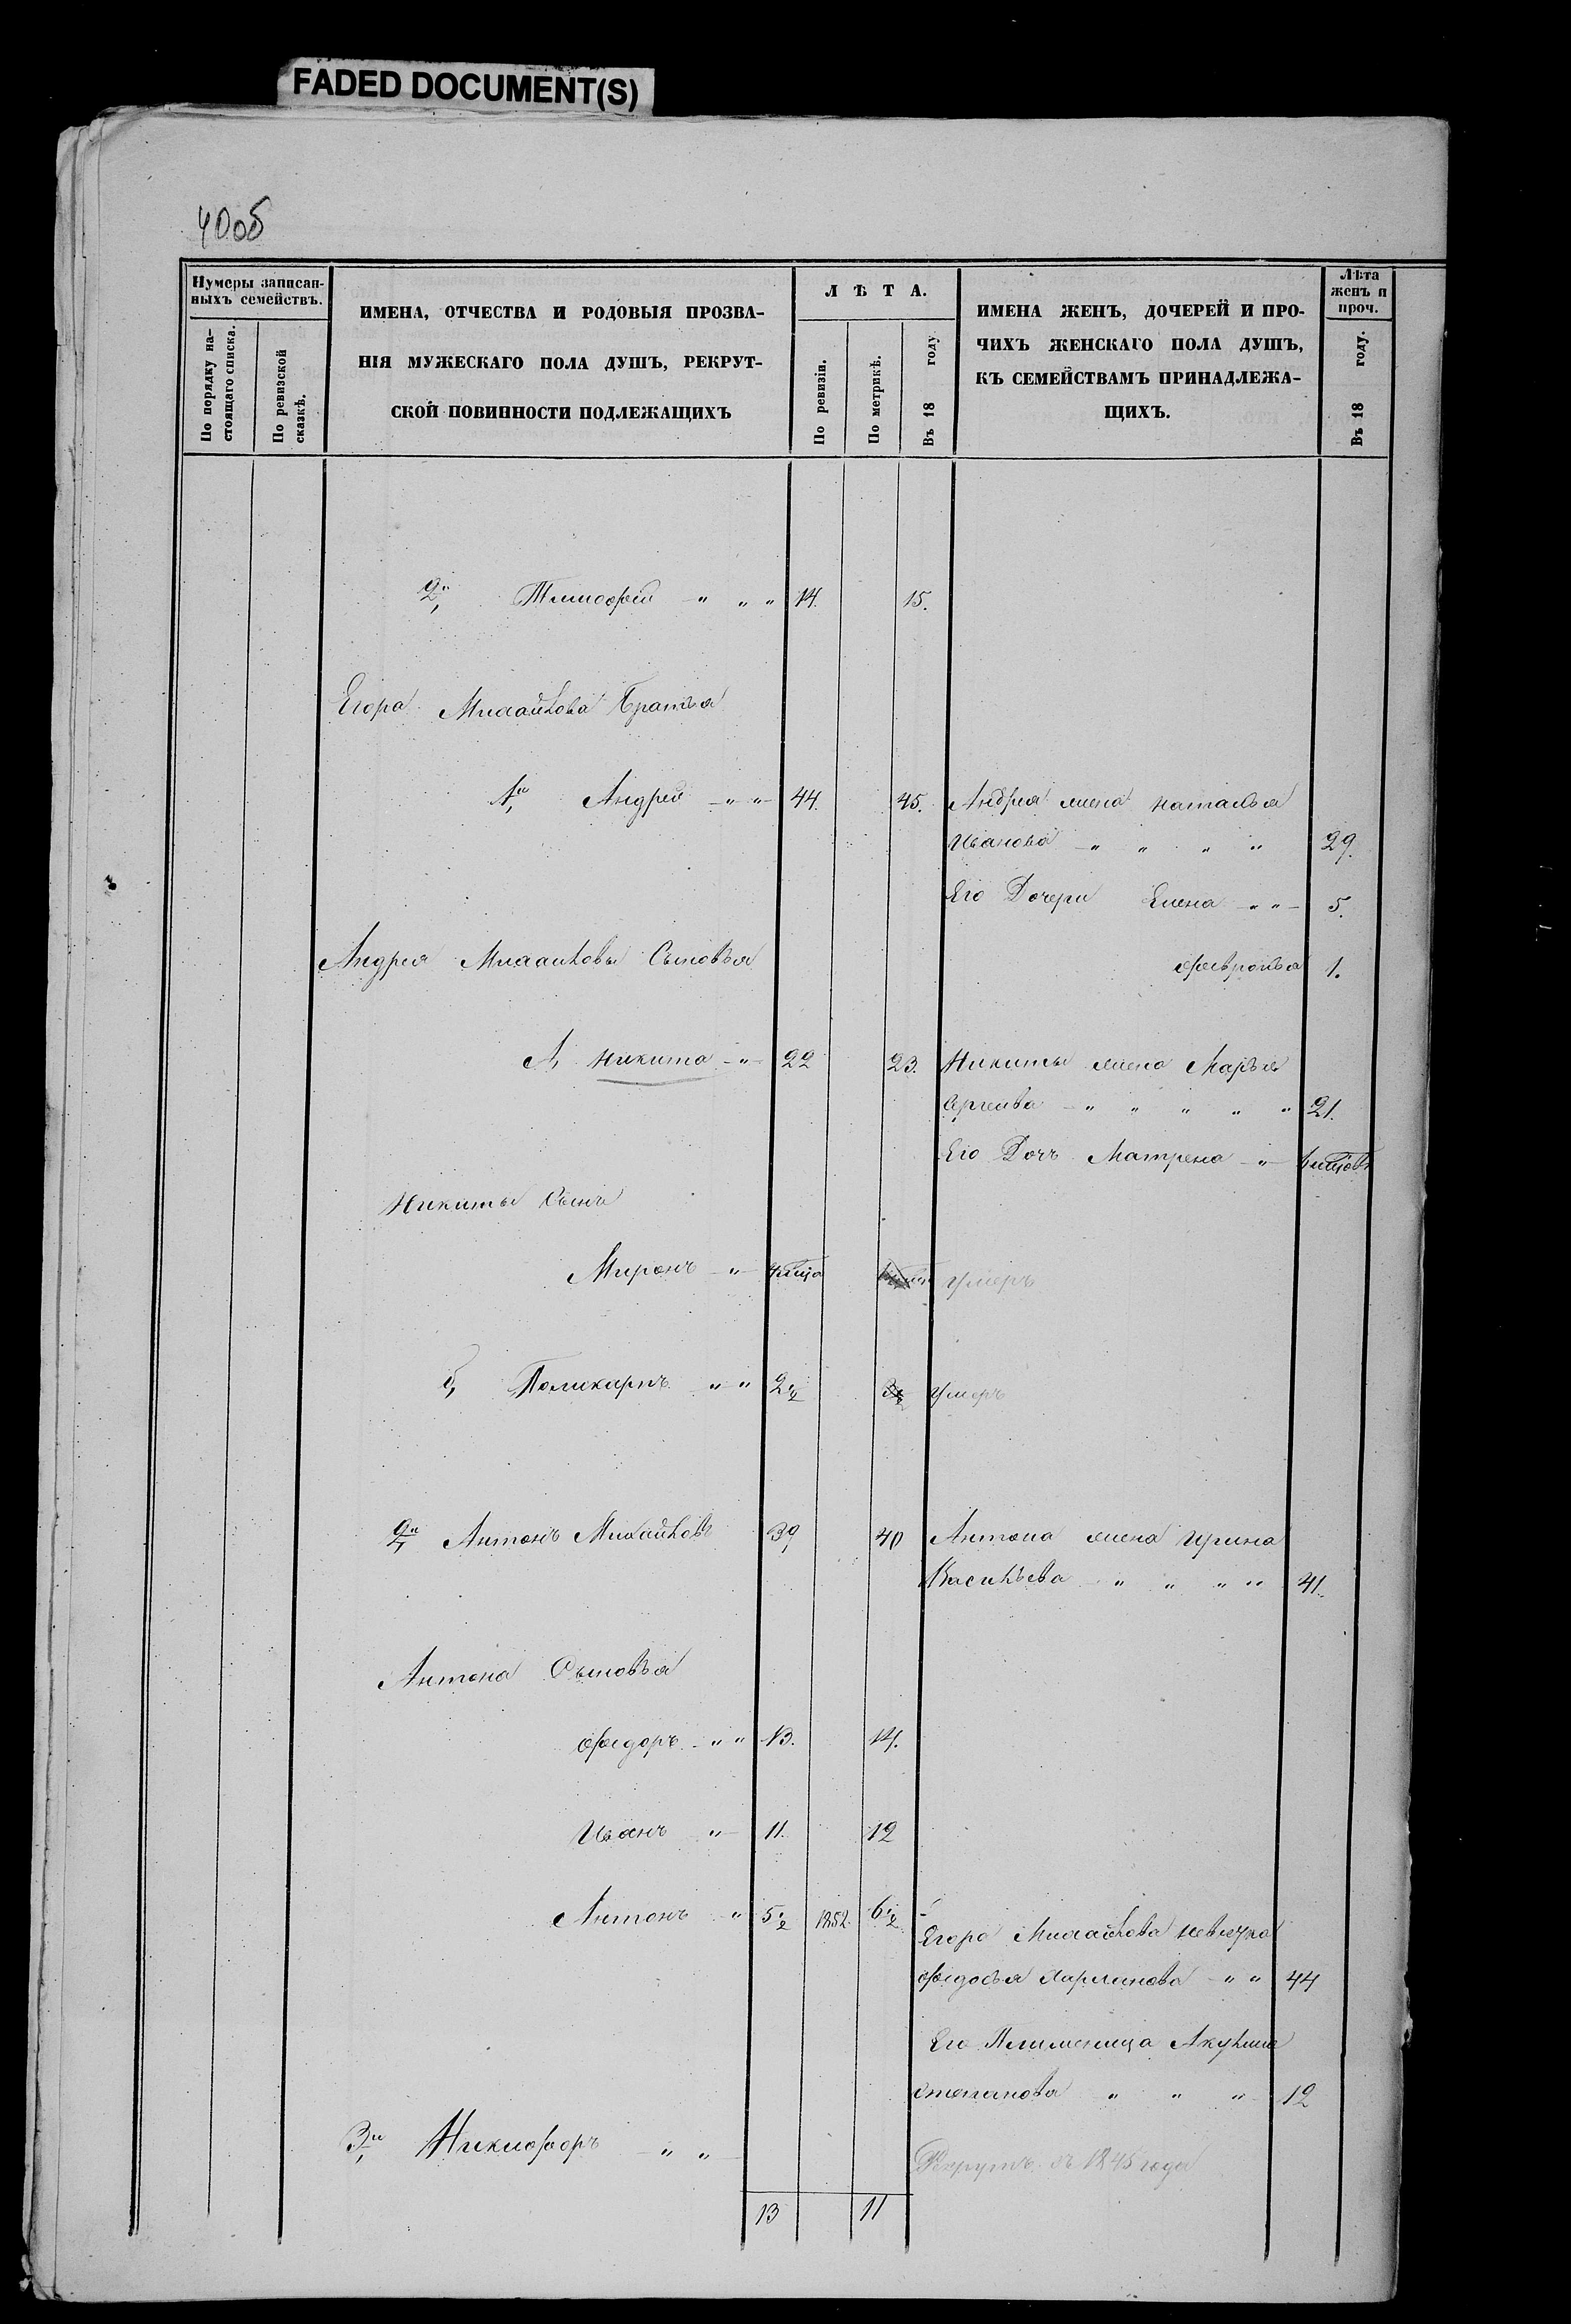 FADED DOCUMENT(S)
40об
Нумеры записан-
ныхъ семействъ.
По порядку на-
стоящаго списка.
По ревизской
сказкѣ.
ИМЕНА, ОТЧЕСТВА И РОДОВЫЯ ПРОЗВА-
НІЯ МУЖЕСКАГО ПОЛА ДУШЪ, РЕКРУТ-
СКОЙ ПОВИННОСТИ ПОДЛЕЖАЩИХЪ
ЛѢТА.
По ревизіи.
По метрикѣ.
Въ 18 году
ИМЕНА ЖЕНЪ, ДОЧЕРЕЙ И ПРО-
ЧИХЪ ЖЕНСКАГО ПОЛА ДУШЪ,
КЪ СЕМЕЙСТВАМЪ ПРИНАДЛЕЖА-
ЩИХЪ.
Лѣта
женъ и
проч.
Въ 18 году.
2й Тимофей " " " 14. 15.
Егора Михайлова Братья
1й Андрей " " 44. 45. Андрея жена Наталья
Иванова " " " " 29.
Его Дочери Елена " " 5.
Андрея Михайлова Сыновья Февронья 1.
1, Никита " 22 23. Никиты жена Марья
Сергеева " " " " " 21.
Его Дочь Матрена "
Никиты Сынъ
Миронъ " умеръ
Поликарпъ " " 2½ умеръ
2й Антонъ Михайловъ 39 40 Антона жена Ирина
Васильева " " " " 41.
Антона Сыновья
Федоръ " " 13. 14.
Иванъ " 11. 12
Антонъ " 5½ 1852. 6½
Егора Михайлова невестка
Федосья 44
Его Племеница Акулина
Степанова " " " 12
3й Никифоръ " "
Рекрутъ съ 1845 года
13 11